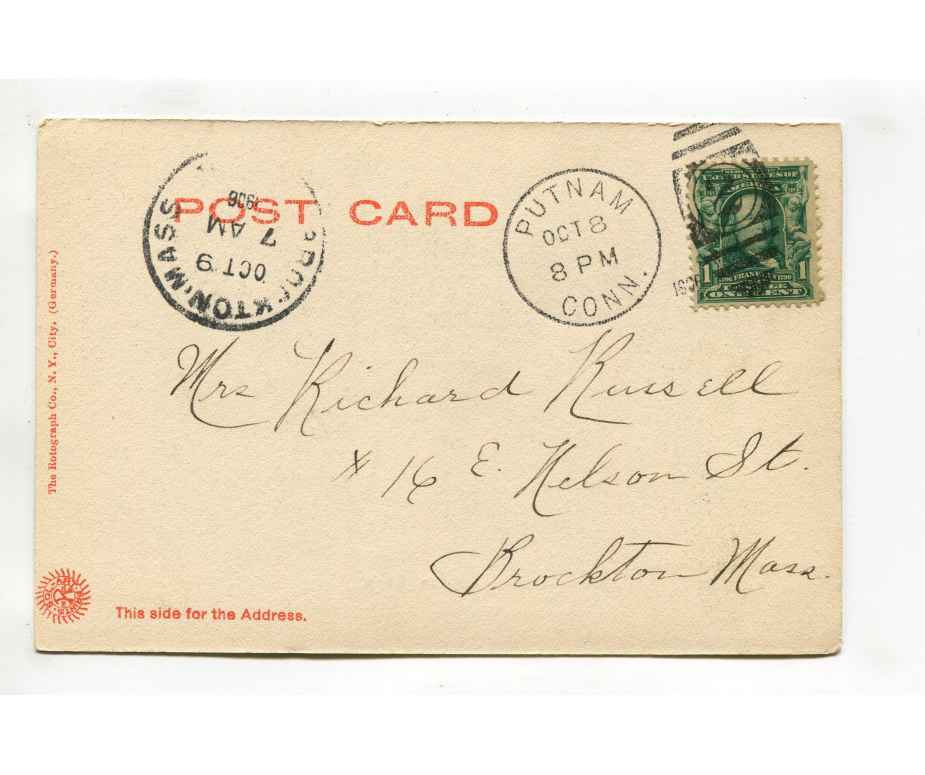 POST CARD
BROCKTON, MASS.
OCT 9
7 AM
1906
PUTNAM
OCT 8
8 PM
CONN.
1906
UNITED STATES OF
AMERICA
1 FRANKLIN 1
ONE CENT
Mrs Richard Russell
# 16 E. Nelson St.
Brockton Mass.
The Rotograph Co., N. Y., City. (Germany.)
This side for the Address.